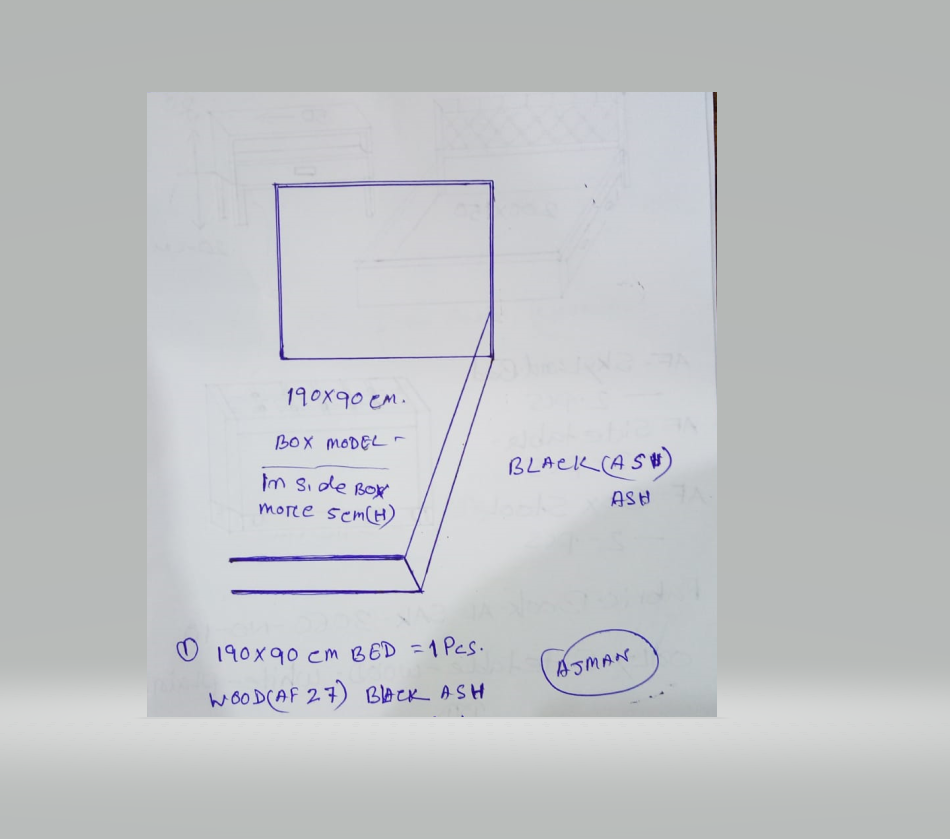 190X90 CM.
BOX MODEL -
In side BOX
more 5cm(H)
BLACK (ASH)
ASH
① 190X90 cm BED = 1 Pcs.
AJMAN
WOOD(AF 27) BLACK ASH